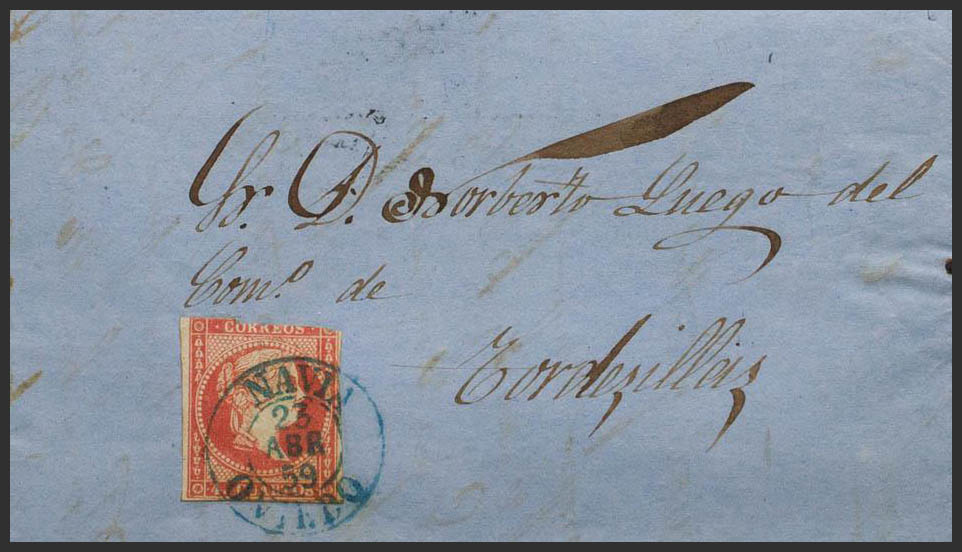 Sr. D. Norberto Luego del
Com.o de
Tordesillas
CORREOS
NAVIA
23
ABR
59
OVIEDO